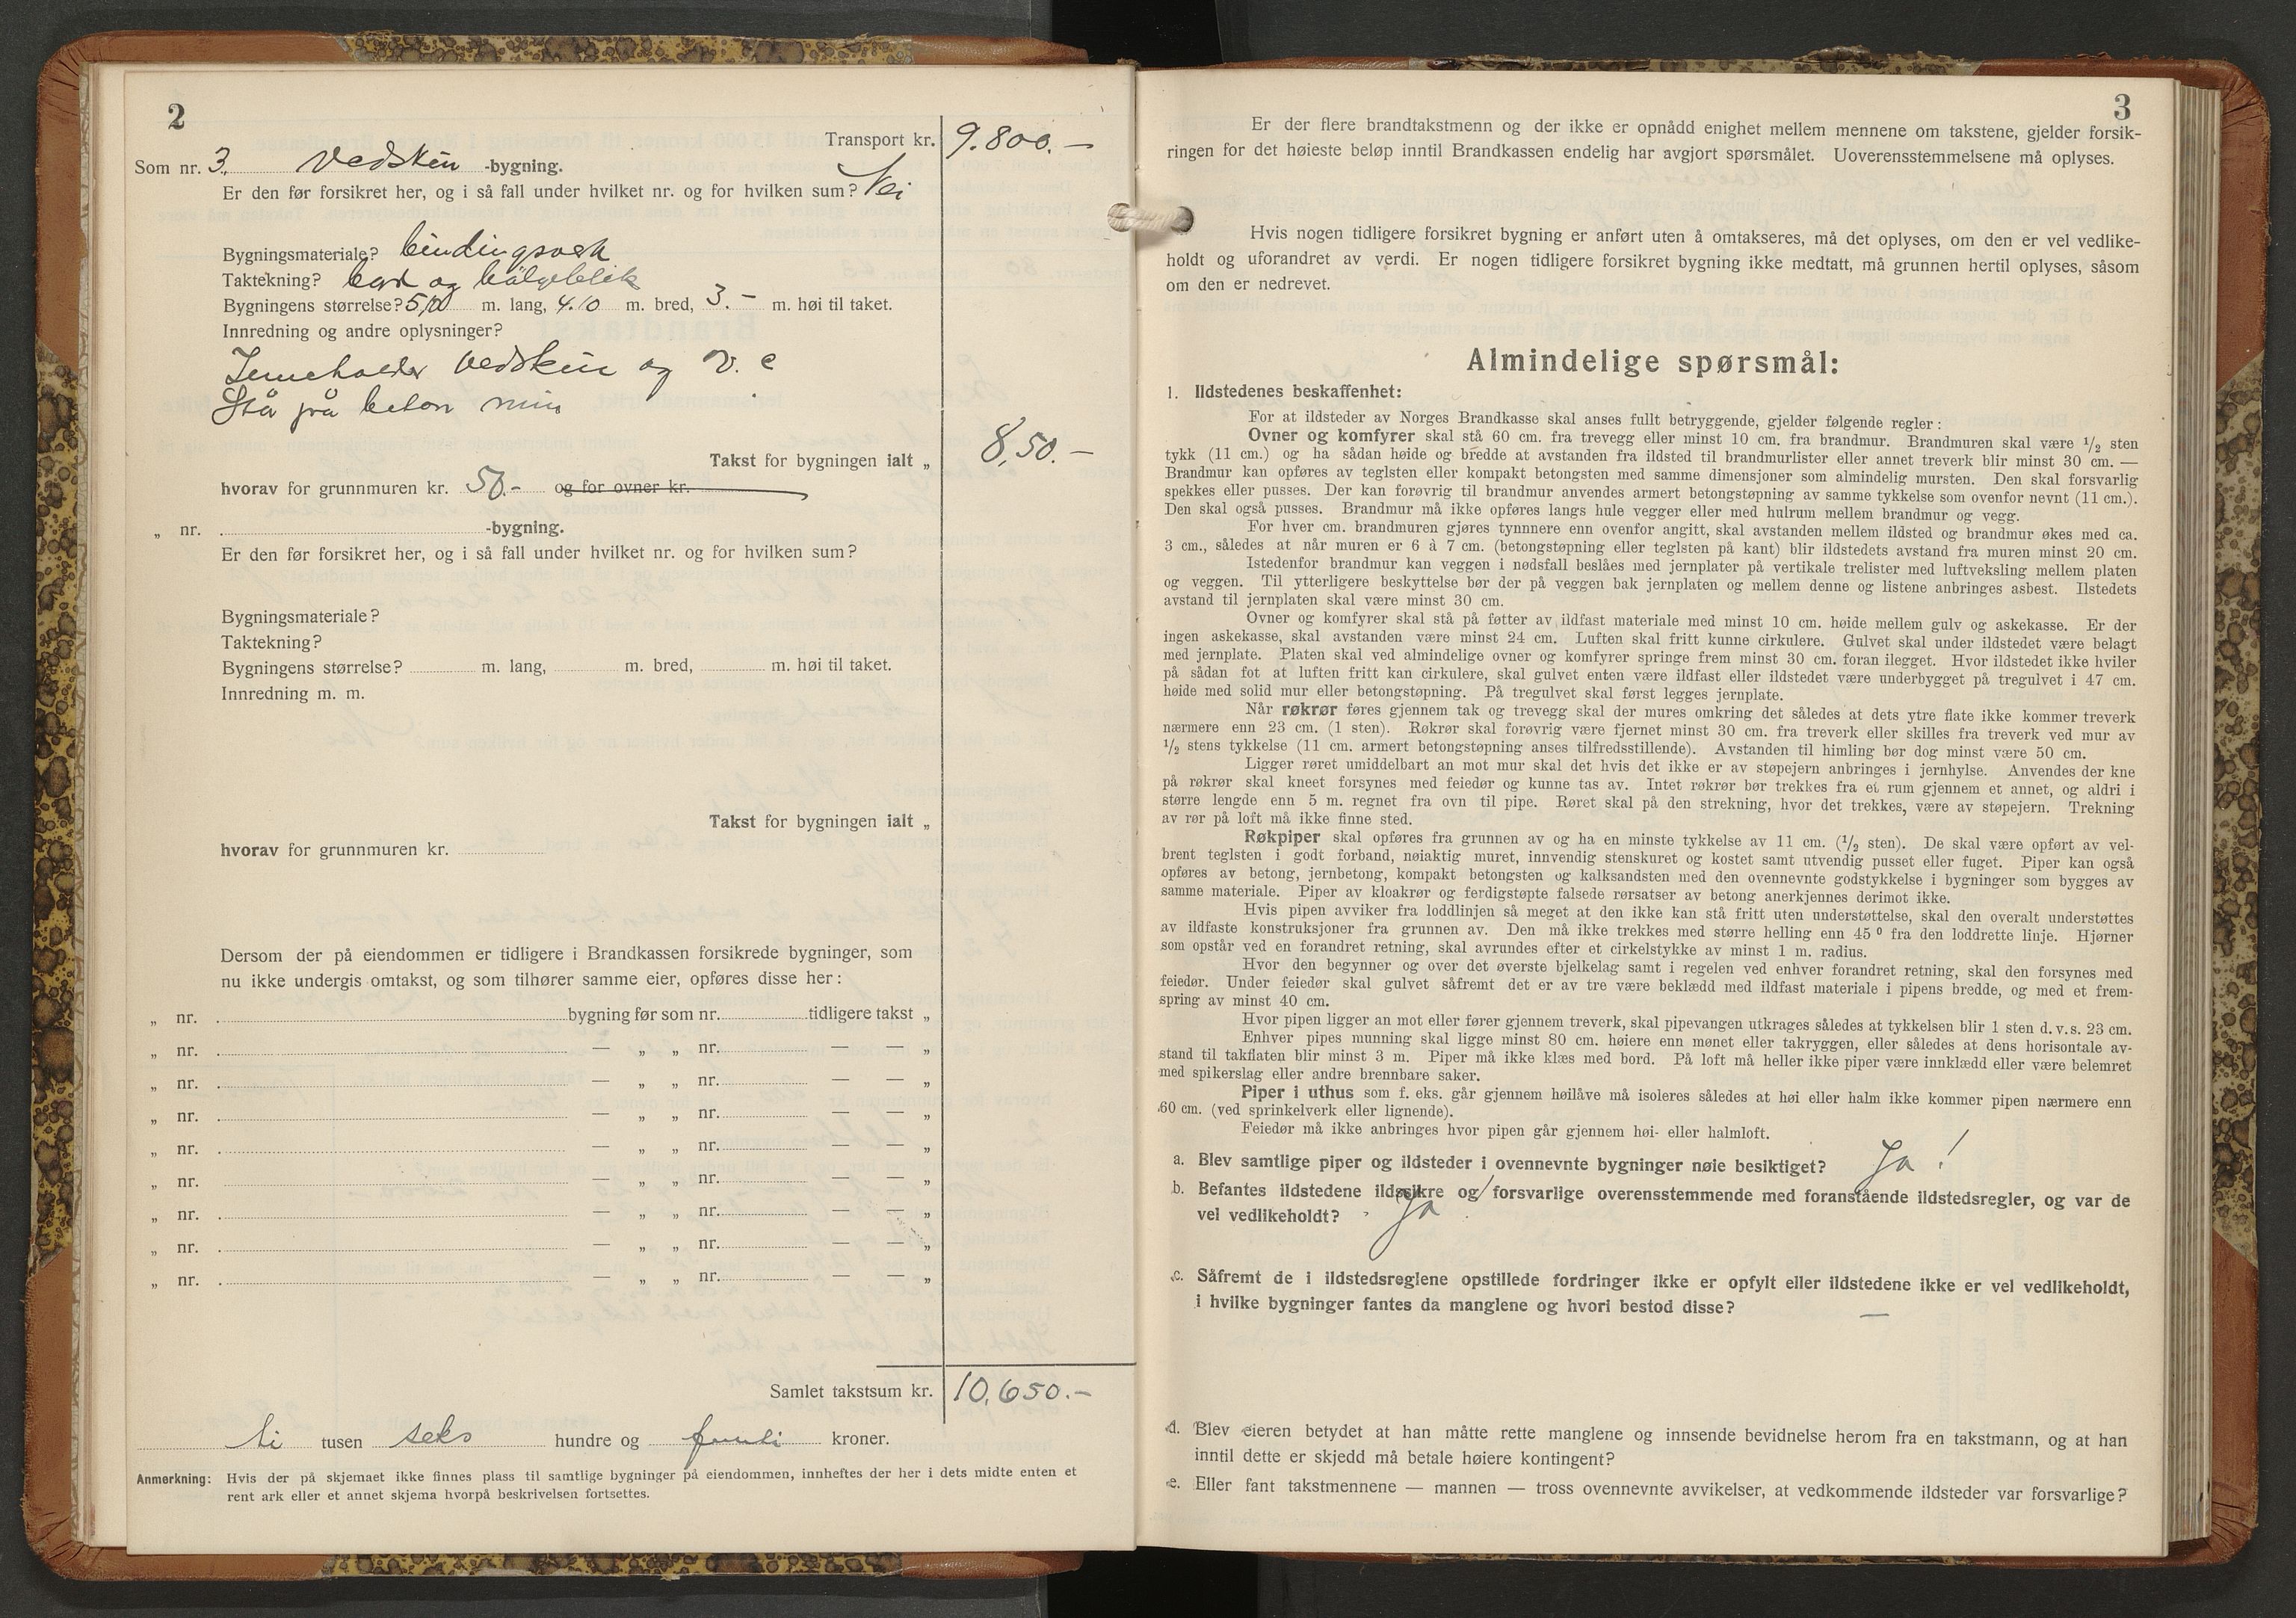 2
Transport kr. 9.800.—
Som nr. 3. Vedskur -bygning.
Er den før forsikret her, og i så fall under hvilket nr. og for hvilken sum? Nei
Bygningsmateriale? bindingsverk
Taktekning? bord og bølgeblikk
Bygningens størrelse? 5,00 m. lang, 4.10 m. bred, 3.— m. høi til taket.
Innredning og andre oplysninger?
Inneholder vedskur og V. c
Står på beton mur
Takst for bygningen ialt „ 8,50.—
hvorav for grunnmuren kr. 50.- og for ovner kr.
„ nr. -bygning.
Er den før forsikret her, og i så fall under hvilket nr. og for hvilken sum?
Bygningsmateriale?
Taktekning?
Bygningens størrelse? m. lang, m. bred, m. høi til taket.
Innredning m. m.
Takst for bygningen ialt „
hvorav for grunnmuren kr.
Dersom der på eiendommen er tidligere i Brandkassen forsikrede bygninger, som
nu ikke undergis omtakst, og som tilhører samme eier, opføres disse her:
„ nr. bygning før som nr. tidligere takst „
„ nr. — „ „ nr. — — „
„ nr. — „ „ nr. — — „
„ nr. — „ „ nr. — — „
„ nr. — „ „ nr. — — „
„ nr. — „ „ nr. — — „
„ nr. — „ „ nr. — — „
„ nr. — „ „ nr. — — „
„ nr. — „ „ nr. — — „
Samlet takstsum kr. 10,650.—
ti tusen seks hundre og femti kroner.
Anmerkning: Hvis der på skjemaet ikke finnes plass til samtlige bygninger på eiendommen, innheftes der her i dets midte enten et
rent ark eller et annet skjema hvorpå beskrivelsen fortsettes.
3
Er der flere brandtakstmenn og der ikke er opnådd enighet mellem mennene om takstene, gjelder forsik-
ringen for det høieste beløp inntil Brandkassen endelig har avgjort spørsmålet. Uoverensstemmelsene må oplyses.
Hvis nogen tidligere forsikret bygning er anført uten å omtakseres, må det oplyses, om den er vel vedlike-
holdt og uforandret av verdi. Er nogen tidligere forsikret bygning ikke medtatt, må grunnen hertil oplyses, såsom
om den er nedrevet.
Almindelige spørsmål:
1. Ildstedenes beskaffenhet:
For at ildsteder av Norges Brandkasse skal anses fullt betryggende, gjelder følgende regler:
Ovner og komfyrer skal stå 60 cm. fra trevegg eller minst 10 cm. fra brandmur. Brandmuren skal være 1/2 sten
tykk (11 cm.) og ha sådan høide og bredde at avstanden fra ildsted til brandmurlister eller annet treverk blir minst 30 cm. —
Brandmur kan opføres av teglsten eller kompakt betongsten med samme dimensjoner som almindelig mursten. Den skal forsvarlig
spekkes eller pusses. Der kan forøvrig til brandmur anvendes armert betongstøpning av samme tykkelse som ovenfor nevnt (11 cm.).
Den skal også pusses. Brandmur må ikke opføres langs hule vegger eller med hulrum mellem brandmur og vegg.
For hver cm. brandmuren gjøres tynnnere enn ovenfor angitt, skal avstanden mellem ildsted og brandmur økes med ca.
3 cm., således at når muren er 6 à 7 cm. (betongstøpning eller teglsten på kant) blir ildstedets avstand fra muren minst 20 cm.
Istedenfor brandmur kan veggen i nødsfall beslåes med jernplater på vertikale trelister med luftveksling mellem platen
og veggen. Til ytterligere beskyttelse bør der på veggen bak jernplaten og mellem denne og listene anbringes asbest. Ilstedets
avstand til jernplaten skal være minst 30 cm.
Ovner og komfyrer skal stå på føtter av ildfast materiale med minst 10 cm. høide mellem gulv og askekasse. Er der
ingen askekasse, skal avstanden være minst 24 cm. Luften skal fritt kunne cirkulere. Gulvet skal under ildstedet være belagt
med jernplate. Platen skal ved almindelige ovner og komfyrer springe frem minst 30 cm. foran ilegget. Hvor ildstedet ikke hviler
på sådan fot at luften fritt kan cirkulere, skal gulvet enten være ildfast eller ildstedet være underbygget på tregulvet i 47 cm.
høide med solid mur eller betongstøpning. På tregulvet skal først legges jernplate.
Når røkrør føres gjennem tak og trevegg skal der mures omkring det således at dets ytre flate ikke kommer treverk
nærmere enn 23 cm. (1 sten). Røkrør skal forøvrig være fjernet minst 30 cm. fra treverk eller skilles fra treverk ved mur av
1/2 stens tykkelse (11 cm. armert betongstøpning anses tilfredsstillende). Avstanden til himling bør dog minst være 50 cm.
Ligger røret umiddelbart an mot mur skal det hvis det ikke er av støpejern anbringes i jernhylse. Anvendes der kne
på røkrør skal kneet forsynes med feiedør og kunne tas av. Intet røkrør bør trekkes fra et rum gjennem et annet, og aldri i
større lengde enn 5 m. regnet fra ovn til pipe. Røret skal på den strekning, hvor det trekkes, være av støpejern. Trekning
av rør på loft må ikke finne sted.
Røkpiper skal opføres fra grunnen av og ha en minste tykkelse av 11 cm. (1/2 sten). De skal være opført av vel-
brent teglsten i godt forband, nøiaktig muret, innvendig stenskuret og kostet samt utvendig pusset eller fuget. Piper kan også
opføres av betong, jernbetong, kompakt betongsten og kalksandsten med den ovennevnte godstykkelse i bygninger som bygges av
samme materiale. Piper av kloakrør og ferdigstøpte falsede rørsatser av betong anerkjennes derimot ikke.
Hvis pipen avviker fra loddlinjen så meget at den ikke kan stå fritt uten understøttelse, skal den overalt understøttes
av ildfaste konstruksjoner fra grunnen av. Den må ikke trekkes med større helling enn 45° fra den loddrette linje. Hjørner
som opstår ved en forandret retning, skal avrundes efter et cirkelstykke av minst 1 m. radius.
Hvor den begynner og over det øverste bjelkelag samt i regelen ved enhver forandret retning, skal den forsynes med
feiedør. Under feiedør skal gulvet såfremt det er av tre være beklædd med ildfast materiale i pipens bredde, og med et frem-
spring av minst 40 cm.
Hvor pipen ligger an mot eller fører gjennem treverk, skal pipevangen utkrages således at tykkelsen blir 1 sten d.v.s. 23 cm.
Enhver pipes munning skal ligge minst 80 cm. høiere enn mønet eller takryggen, eller således at dens horisontale av-
stand til takflaten blir minst 3 m. Piper må ikke klæs med bord. På loft må heller ikke piper være innklædd eller være belemret
med spikerslag eller andre brennbare saker.
Piper i uthus som f. eks. går gjennem høilåve må isoleres således at høi eller halm ikke kommer pipen nærmere enn
60 cm. (ved sprinkelverk eller lignende).
Feiedør må ikke anbringes hvor pipen går gjennem høi- eller halmloft.
a. Blev samtlige piper og ildsteder i ovennevnte bygninger nøie besiktiget? Ja !
b. Befantes ildstedene ildssikre og forsvarlige overensstemmende med foranstående ildstedsregler, og var de
vel vedlikeholdt? Ja !
c. Såfremt de i ildstedsreglene opstillede fordringer ikke er opfylt eller ildstedene ikke er vel vedlikeholdt,
i hvilke bygninger fantes da manglene og hvori bestod disse? —
d. Blev eieren betydet at han måtte rette manglene og innsende bevidnelse herom fra en takstmann, og at han
inntil dette er skjedd må betale høiere kontingent?
e. Eller fant takstmennene — mannen — tross ovennevnte avvikelser, at vedkommende ildsteder var forsvarlige?